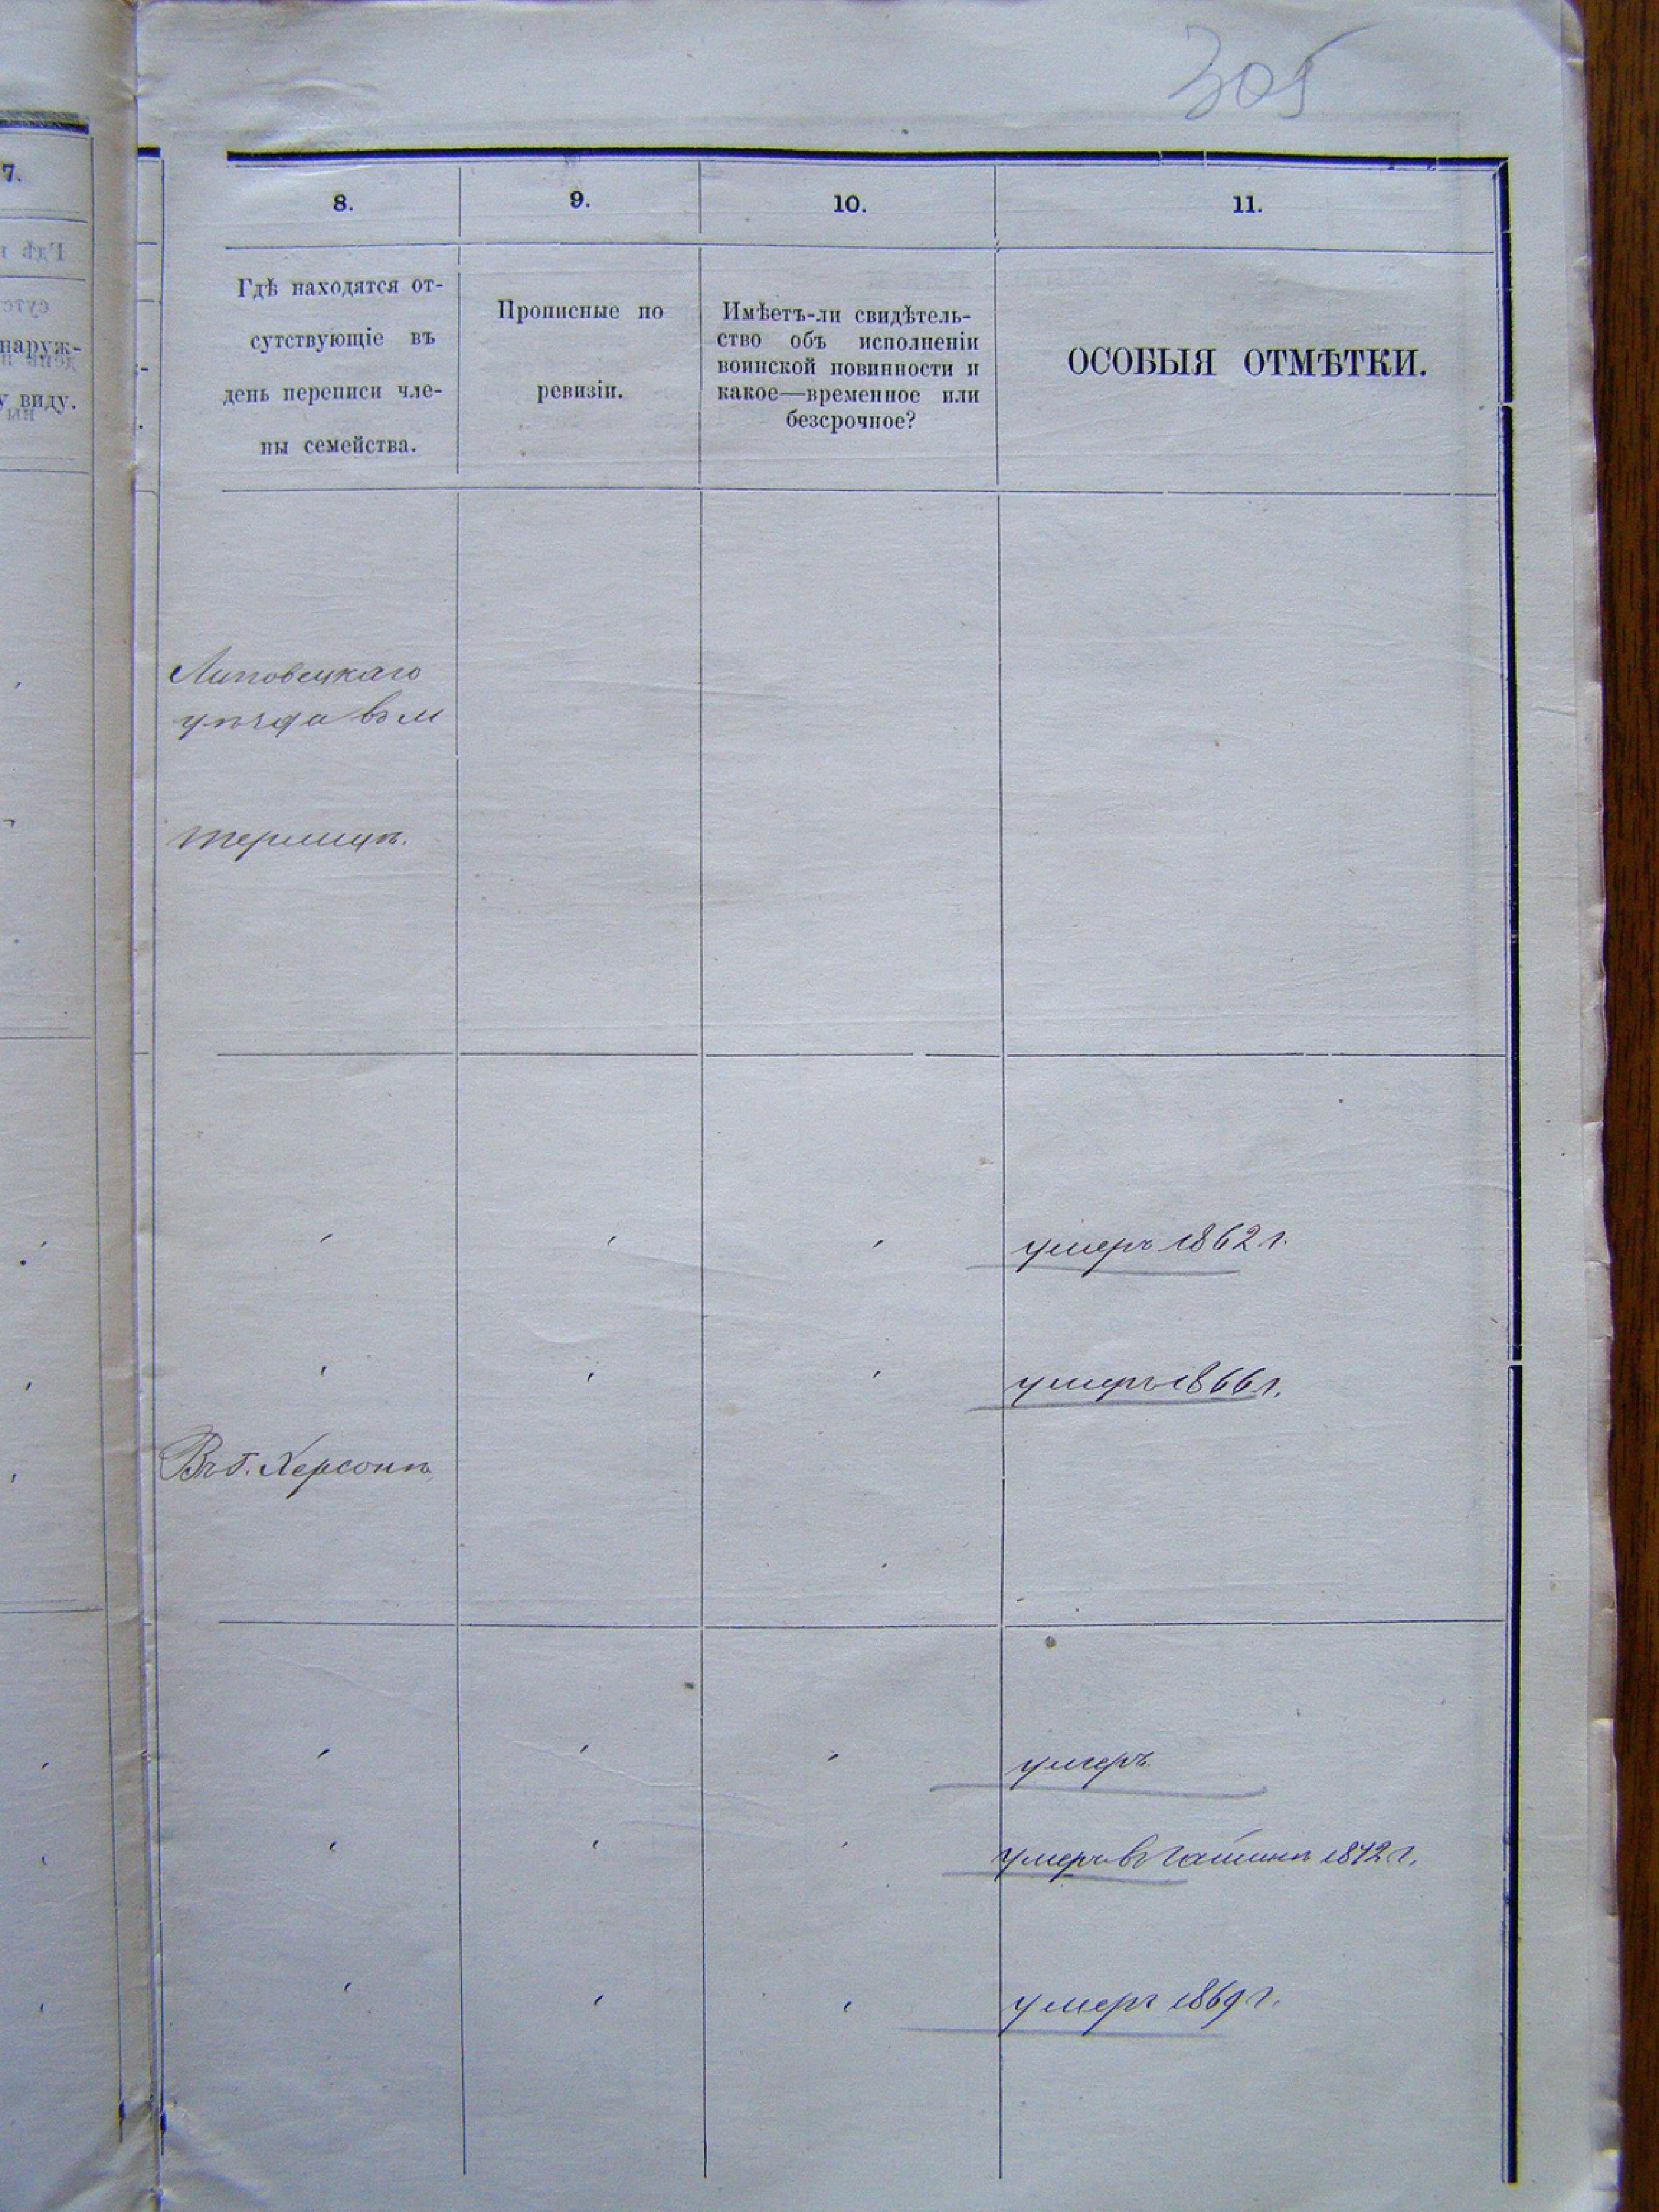 305
7.
наруж-
у виду.
8.
9.
10.
11.
Гдѣ находятся от-
сутствующіе въ
день переписи чле-
ны семейства.
Прописные по
ревизіи.
Имѣетъ-ли свидѣтель-
ство объ исполненіи
воинской повинности и
какое—временное или
безсрочное?
ОСОБЫЯ ОТМѢТКИ.
Липовецкаго
уѣзда въ м
умеръ 1862 г.
умеръ 1866 г.
Въ г. Херсонѣ
умеръ
умеръ въ 1872 г.
умеръ 1869 г.